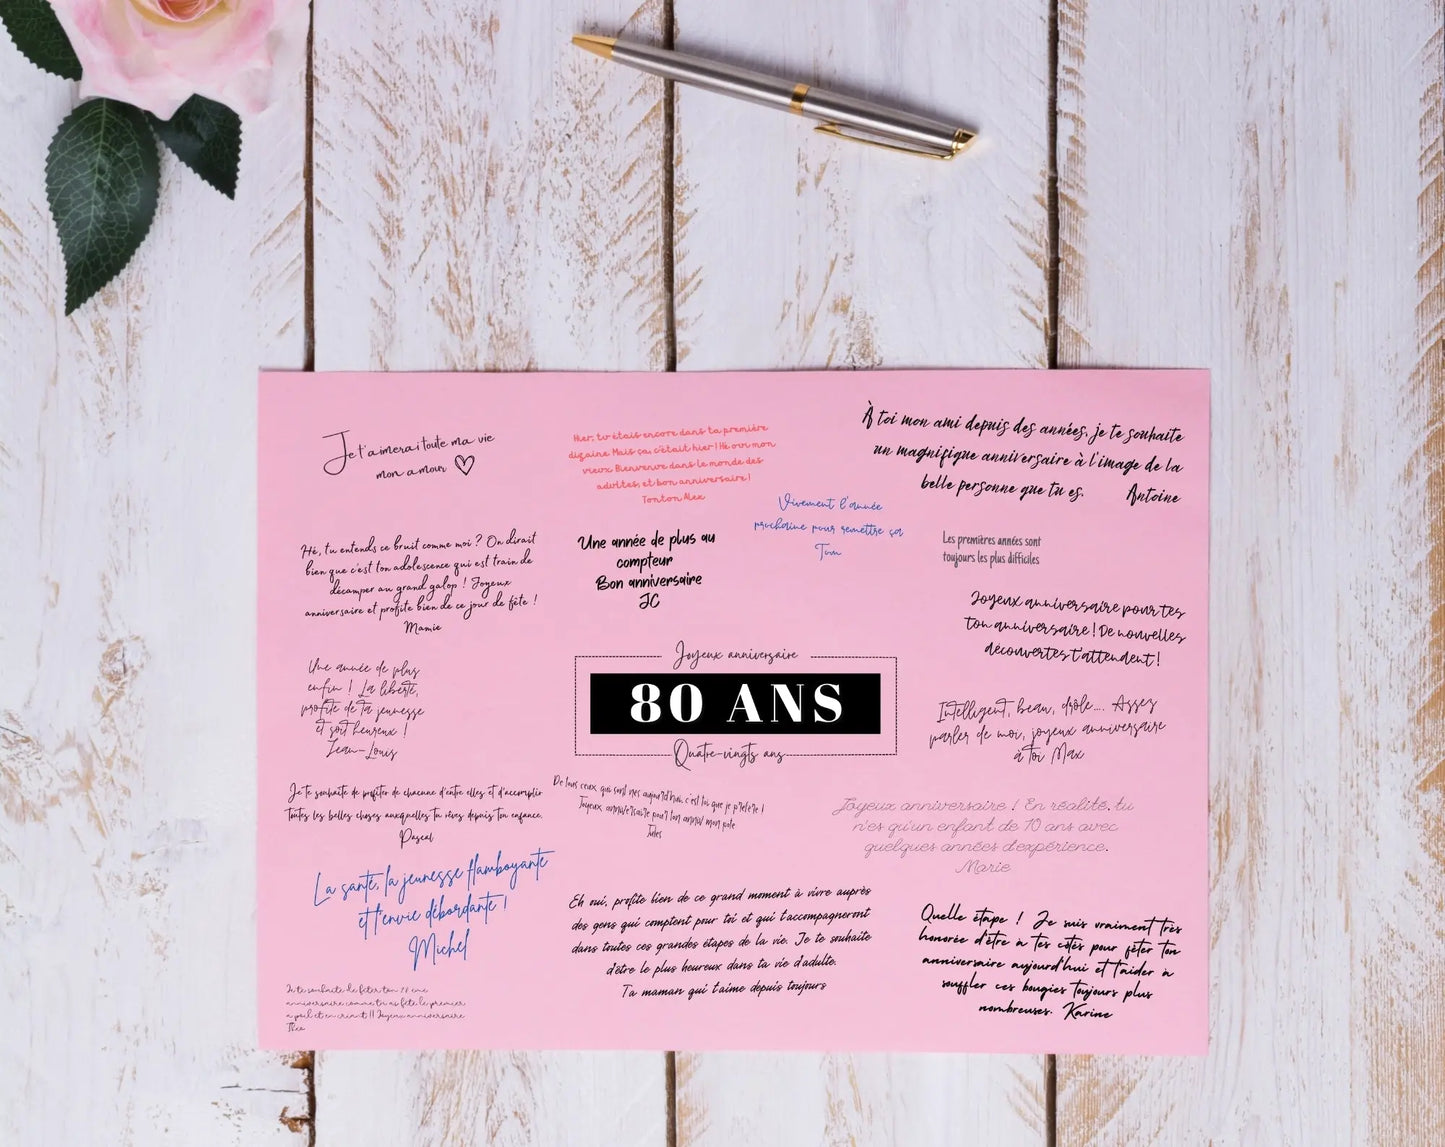 Je t'aimerai toute ma vie
mon amour
Hier, tu étais encore dans ta première
dizaine. Mais ça, c'était hier ! Hé oui mon
vieux. Bienvenue dans le monde des
adultes, et bon anniversaire !
Tonton Alex
À toi mon ami depuis des années, je te souhaite
un magnifique anniversaire à l'image de la
belle personne que tu es. Antoine
Vivement l'année
prochaine pour remettre ça
Tim
Hé, tu entends ce bruit comme moi ? On dirait
bien que c'est ton adolescence qui est train de
décamper au grand galop ! Joyeux
anniversaire et profite bien de ce jour de fête !
Mamie
Une année de plus au
compteur
Bon anniversaire
JC
Les premières années sont
toujours les plus difficiles
Joyeux anniversaire pour tes
ton anniversaire ! De nouvelles
découvertes t'attendent !
Une année de plus
enfin ! La liberté,
profite de ta jeunesse
et soit heureux !
Jean-Louis
Joyeux anniversaire
80 ANS
Quatre-vingts ans
Intelligent, beau, drôle.... Assez
parler de moi, joyeux anniversaire
à toi Max
Je te souhaite de profiter de chacune d'entre elles et d'accomplir
toutes les belles choses auxquelles tu rêves depuis ton enfance.
Pascal
De tous ceux qui sont nés aujourd'hui, c'est toi que je préfère !
Joyeux anniversaire pour ton anniv mon pote
Jules
Joyeux anniversaire ! En réalité, tu
n'es qu'un enfant de 10 ans avec
quelques années d'expérience.
Marie
La santé, la jeunesse flamboyante
et l'envie débordante !
Michel
Eh oui, profite bien de ce grand moment à vivre auprès
des gens qui comptent pour toi et qui t'accompagneront
dans toutes ces grandes étapes de la vie. Je te souhaite
d'être le plus heureux dans ta vie d'adulte.
Ta maman qui t'aime depuis toujours
Quelle étape ! Je suis vraiment très
honorée d'être à tes côtés pour fêter ton
anniversaire aujourd'hui et t'aider à
souffler ces bougies toujours plus
nombreuses. Karine
Je te souhaite de fêter ton ème
anniversaire comme tu as fêté le premier
à poil et en criant !! Joyeux anniversaire
Théo